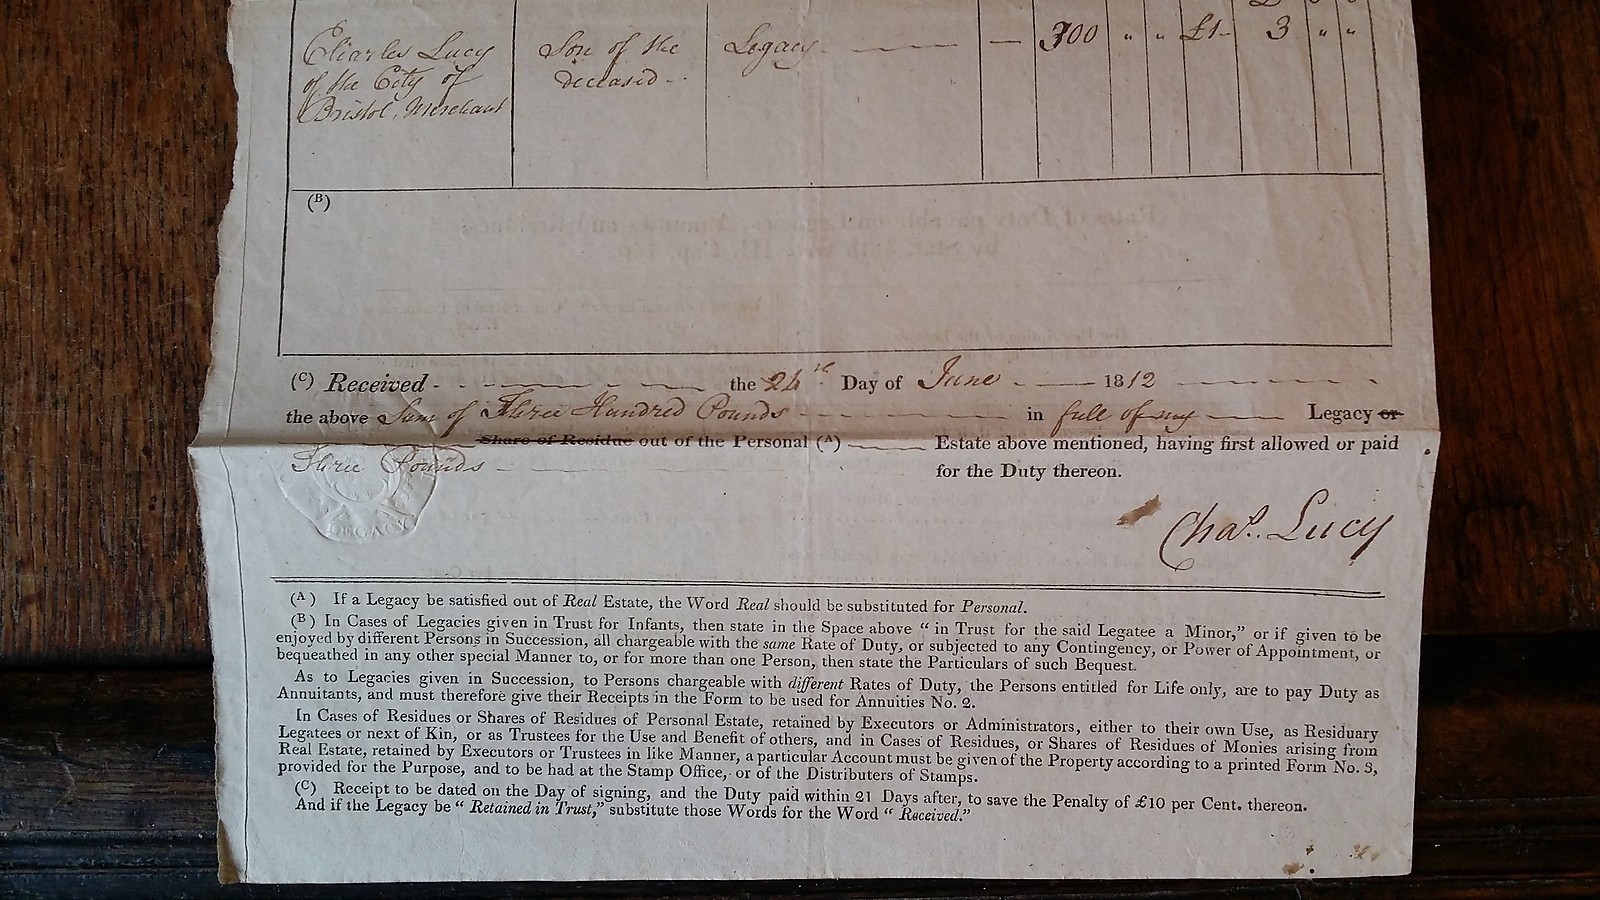 Charles Lucy Son of the Legacy 300 " " £1 3 " "
of the City of deceased
Bristol, Merchant
(B)
(C) Received the 24th Day of June 1812
the above Sum of Three Hundred Pounds in full of my Legacy or
Share of Residue out of the Personal (A) Estate above mentioned, having first allowed or paid
Three Pounds for the Duty thereon.
LEGACY
Chas. Lucy
(A) If a Legacy be satisfied out of Real Estate, the Word Real should be substituted for Personal.
(B) In Cases of Legacies given in Trust for Infants, then state in the Space above “ in Trust for the said Legatee a Minor,” or if given to be
enjoyed by different Persons in Succession, all chargeable with the same Rate of Duty, or subjected to any Contingency, or Power of Appointment, or
bequeathed in any other special Manner to, or for more than one Person, then state the Particulars of such Bequest.
As to Legacies given in Succession, to Persons chargeable with different Rates of Duty, the Persons entitled for Life only, are to pay Duty as
Annuitants, and must therefore give their Receipts in the Form to be used for Annuities No. 2.
In Cases of Residues or Shares of Residues of Personal Estate, retained by Executors or Administrators, either to their own Use, as Residuary
Legatees or next of Kin, or as Trustees for the Use and Benefit of others, and in Cases of Residues, or Shares of Residues of Monies arising from
Real Estate, retained by Executors or Trustees in like Manner, a particular Account must be given of the Property according to a printed Form No. 3,
provided for the Purpose, and to be had at the Stamp Office, or of the Distributers of Stamps.
(C) Receipt to be dated on the Day of signing, and the Duty paid within 21 Days after, to save the Penalty of £10 per Cent. thereon.
And if the Legacy be “ Retained in Trust,” substitute those Words for the Word “ Received.”